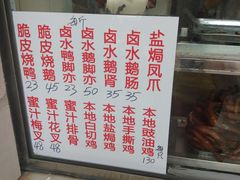 盐焗凤爪
卤水鹅肠
35
卤水鹅肾
35
卤水鹅脚亦
50
每斤
卤水鸭脚亦
35
脆皮烧鹅
45
脆皮烧鸭
23
本地豉油鸡
每只
130
本地手撕鸡
本地盐焗鸡
本地白切鸡
蜜汁排骨
蜜汁花叉
48
蜜汁梅叉
48